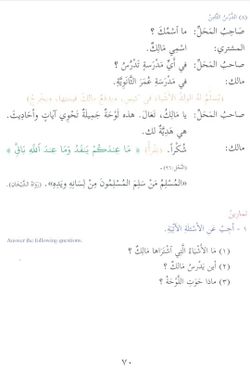 (٨) الدَّرْسُ الثَّامِنُ
صَاحِبُ المَحَلِّ: ما اسْمُكَ ؟
المشتري: اسْمِي مَالِكٌ.
صاحبُ المَحَلِّ: في أَيِّ مَدْرَسةٍ تَدْرُسُ ؟
مالك: في مَدْرَسَةِ عُمَرَ الثَّانَوِيَّةِ.
صاحبُ المَحَلِّ: يا مَالِكُ، تَعَالَ. هذه لَوْحَةٌ جَمِيلَةٌ تَحْوِي آيَاتٍ وأَحَادِيثَ.
هي هَدِيَّةٌ لك.
مالك: شُكْراً. (يَقْرَأُ) ﴿ مَا عِندَكُمْ يَنفَدُ وَمَا عِندَ اللَّهِ بَاقٍ ﴾
«المُسْلِمُ مَنْ سَلِمَ المُسْلِمُونَ مِنْ لِسَانِهِ ويَدِهِ».
تمارين
١ - أجِبْ عَنِ الأَسْئِلَةِ الآتِيَةِ.
Answer the following questions.
(١) مَا الأَشْيَاءُ الَّتِي اشْتَرَاهَا مَالِكٌ ؟
(٢) أين يَدْرُسُ مَالِكٌ ؟
(٣) ماذا حَوَتِ اللَّوْحَةُ ؟
٧٠